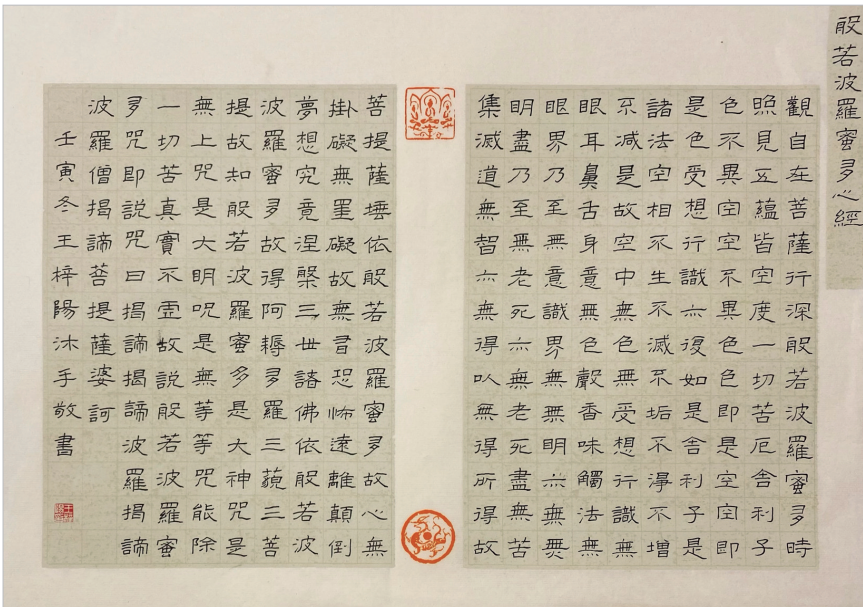 般若波羅蜜多心經
觀自在菩薩行深般若波羅蜜多時
照見五蘊皆空度一切苦厄舍利子
色不異空空不異色色即是空空即
是色受想行識亦復如是舍利子是
諸法空相不生不滅不垢不淨不增
不減是故空中無色無受想行識無
眼耳鼻舌身意無色聲香味觸法無
眼界乃至無意識界無無明亦無無
明盡乃至無老死亦無老死盡無苦
集滅道無智亦無得以無得所得故
菩提薩埵依般若波羅蜜多故心無
掛礙無罣礙故無有恐怖遠離顛倒
夢想究竟涅槃三世諸佛依般若波
波羅蜜多故得阿耨多羅三藐三菩
提故知般若波羅蜜多是大神咒是
無上咒是大明呪是無等等咒能除
一切苦真實不虛故說般若波羅蜜
多咒即說咒曰揭諦揭諦波羅揭諦
波羅僧揭諦菩提薩婆訶
壬寅冬王梓陽沐手敬書